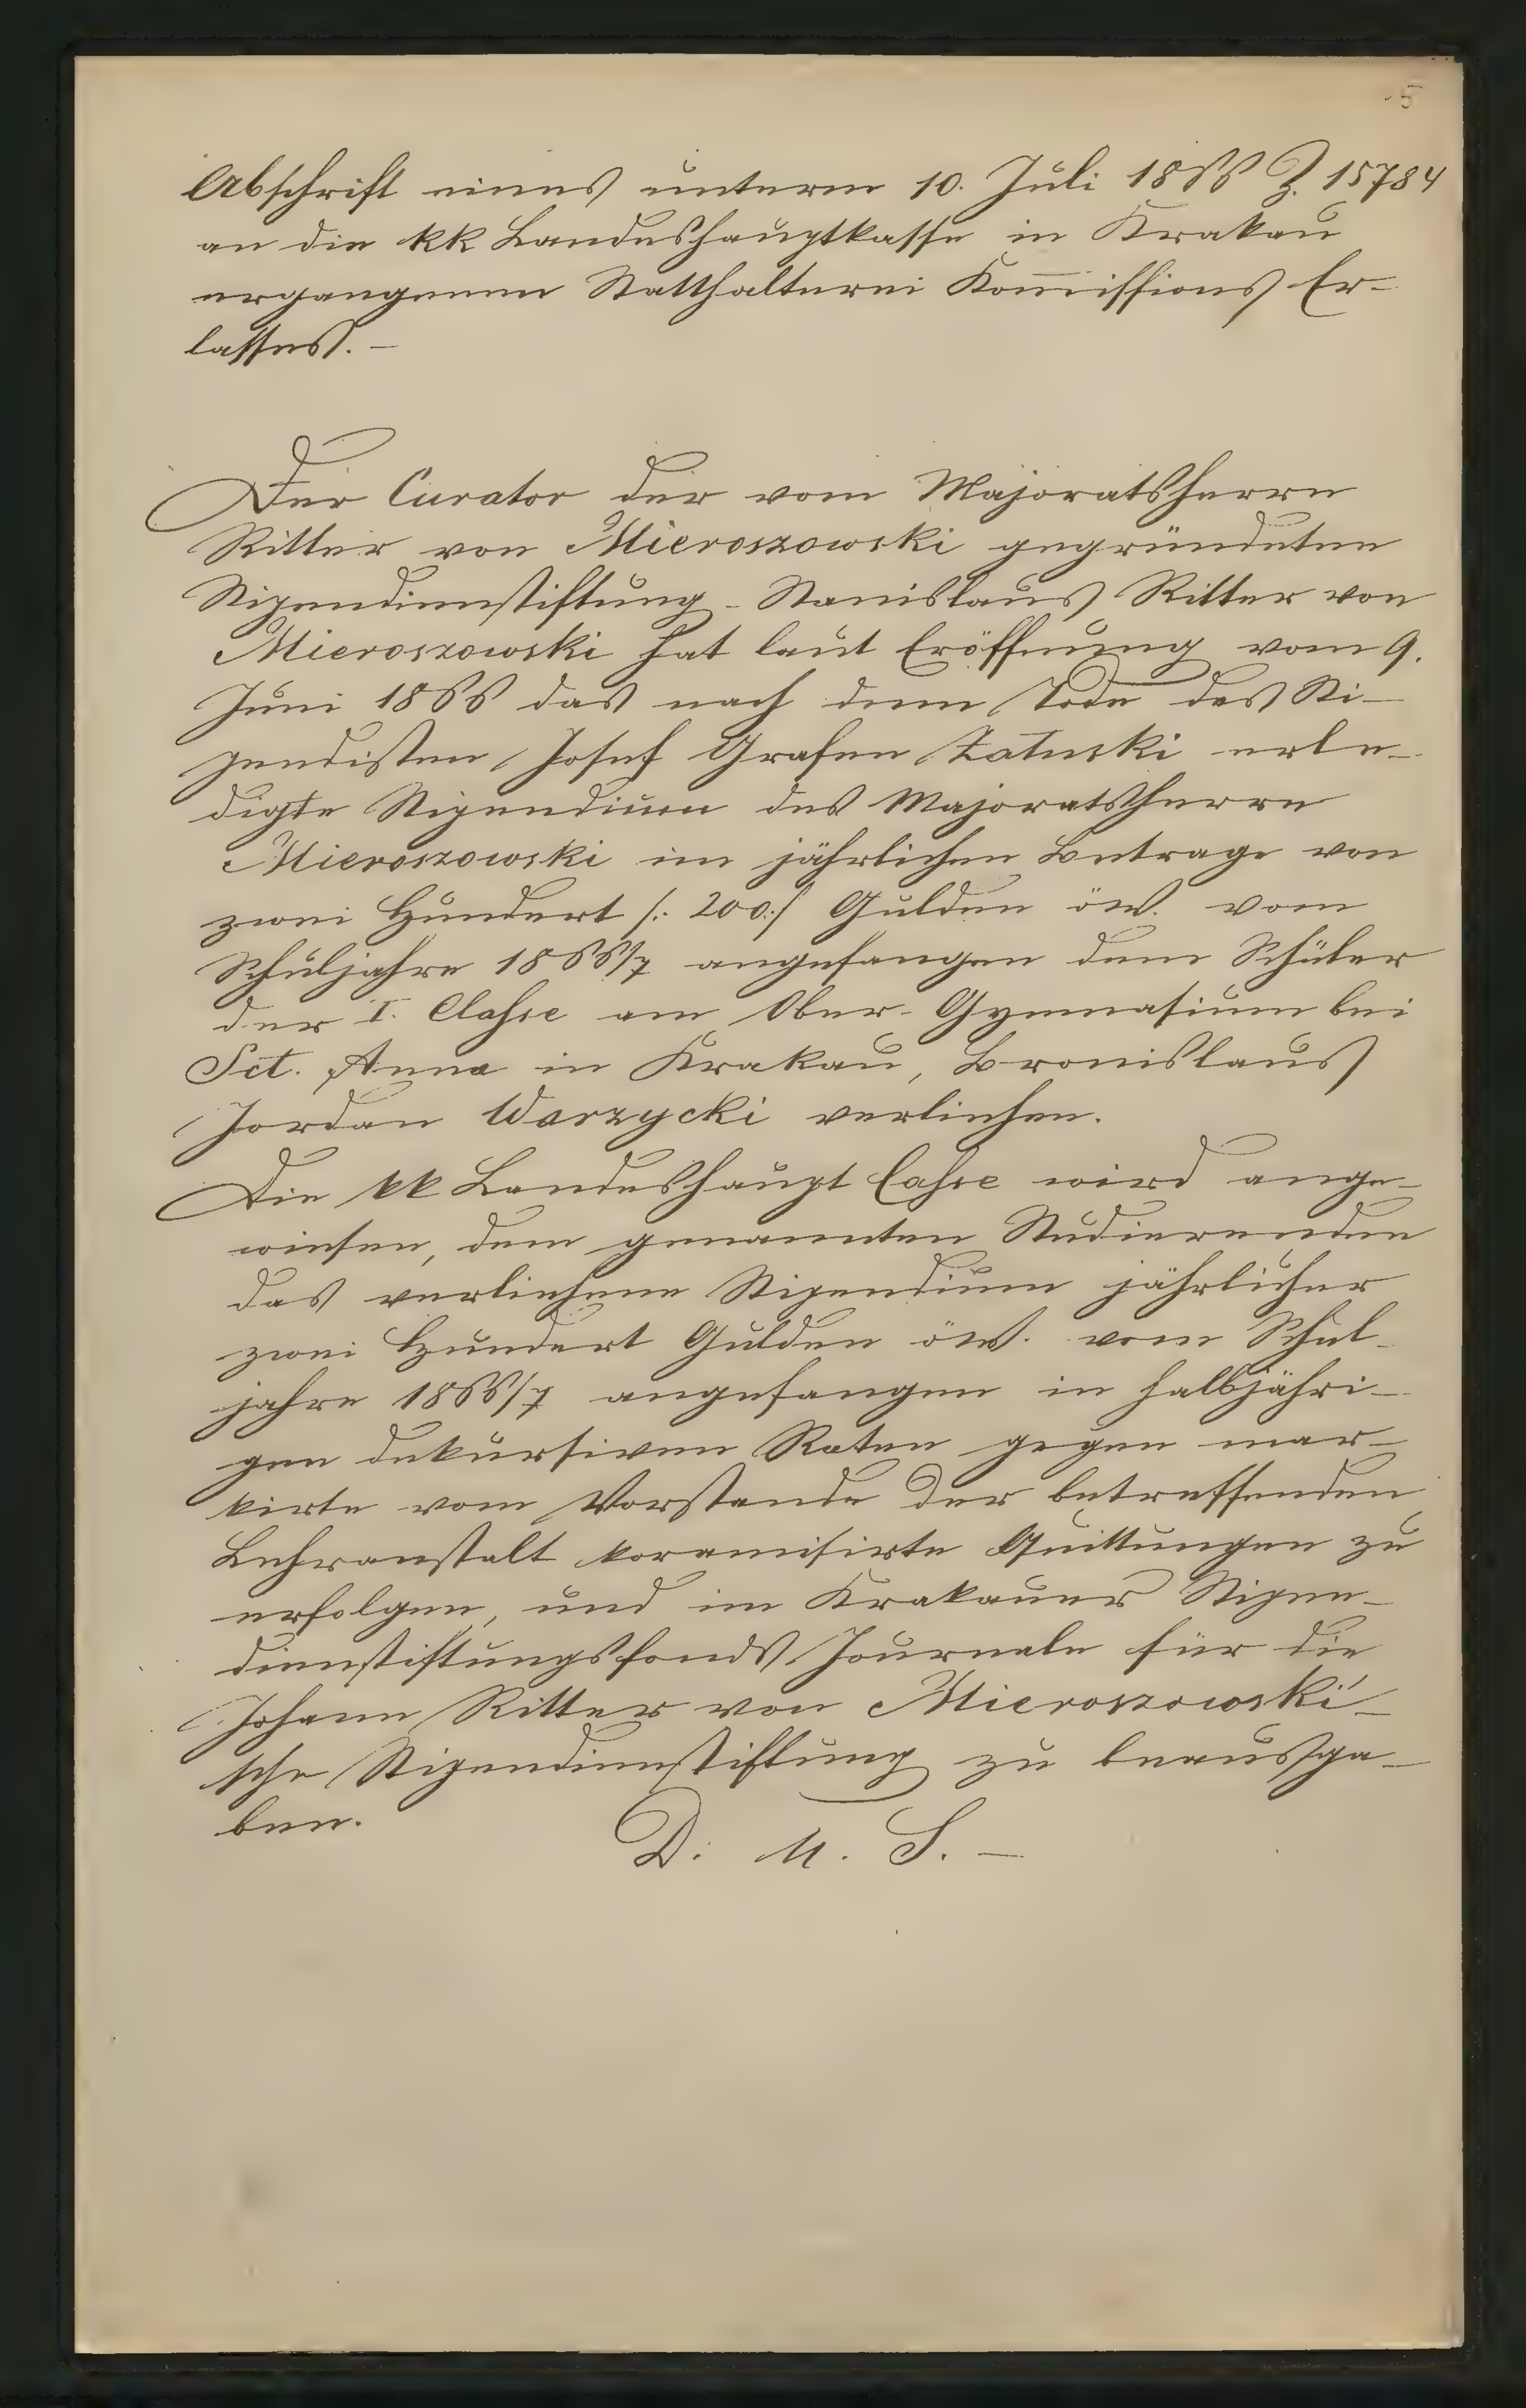 5
Abschrift eines unterm 10. Juli 1866 Z. 15784
an die kk Landeshauptkasse in Krakau
ergangenen Statthalterei Kom̅issions Er-
lasses. –
Der Curator der vom Majoratsherrn
Ritter von Mieroszowski gegründeten
Stipendienstiftung - Stanislaus Ritter von
Mieroszowski hat laut Eröffnung vom 9.
Juni 1866 das nach dem Tode des Sti-
pendisten Josef Grafen Załuski erle-
digte Stipendium des Majoratsherrn
Mieroszowski im jährlichen Betrage von
zwei Hundert /: 200 :/ Gulden öW. vom
Schuljahre 1866/7 angefangen dem Schüler
der I. Classe am Ober-Gymnasium bei
Sct. Anna in Krakau, Bronislaus
Jordan Warzycki verliehen.
Die kk Landeshaupt Casse wird ange-
wiesen, dem genannten Studierenden
das verliehene Stipendium jährlicher
zwei Hundert Gulden öW. vom Schul-
jahre 1866/7 angefangen in halbjähri-
gen dekursiven Raten gegen mar-
kirte vom Vorstande der betreffenden
Lehranstalt koramisirte Quittungen zu
erfolgen, und im Krakauer Stipen-
dienstiftungsfonds Journale für die
Johann Ritter von Mieroszowski'-
sche Stipendienstiftung zu beausga-
ben.
D. U. S. –